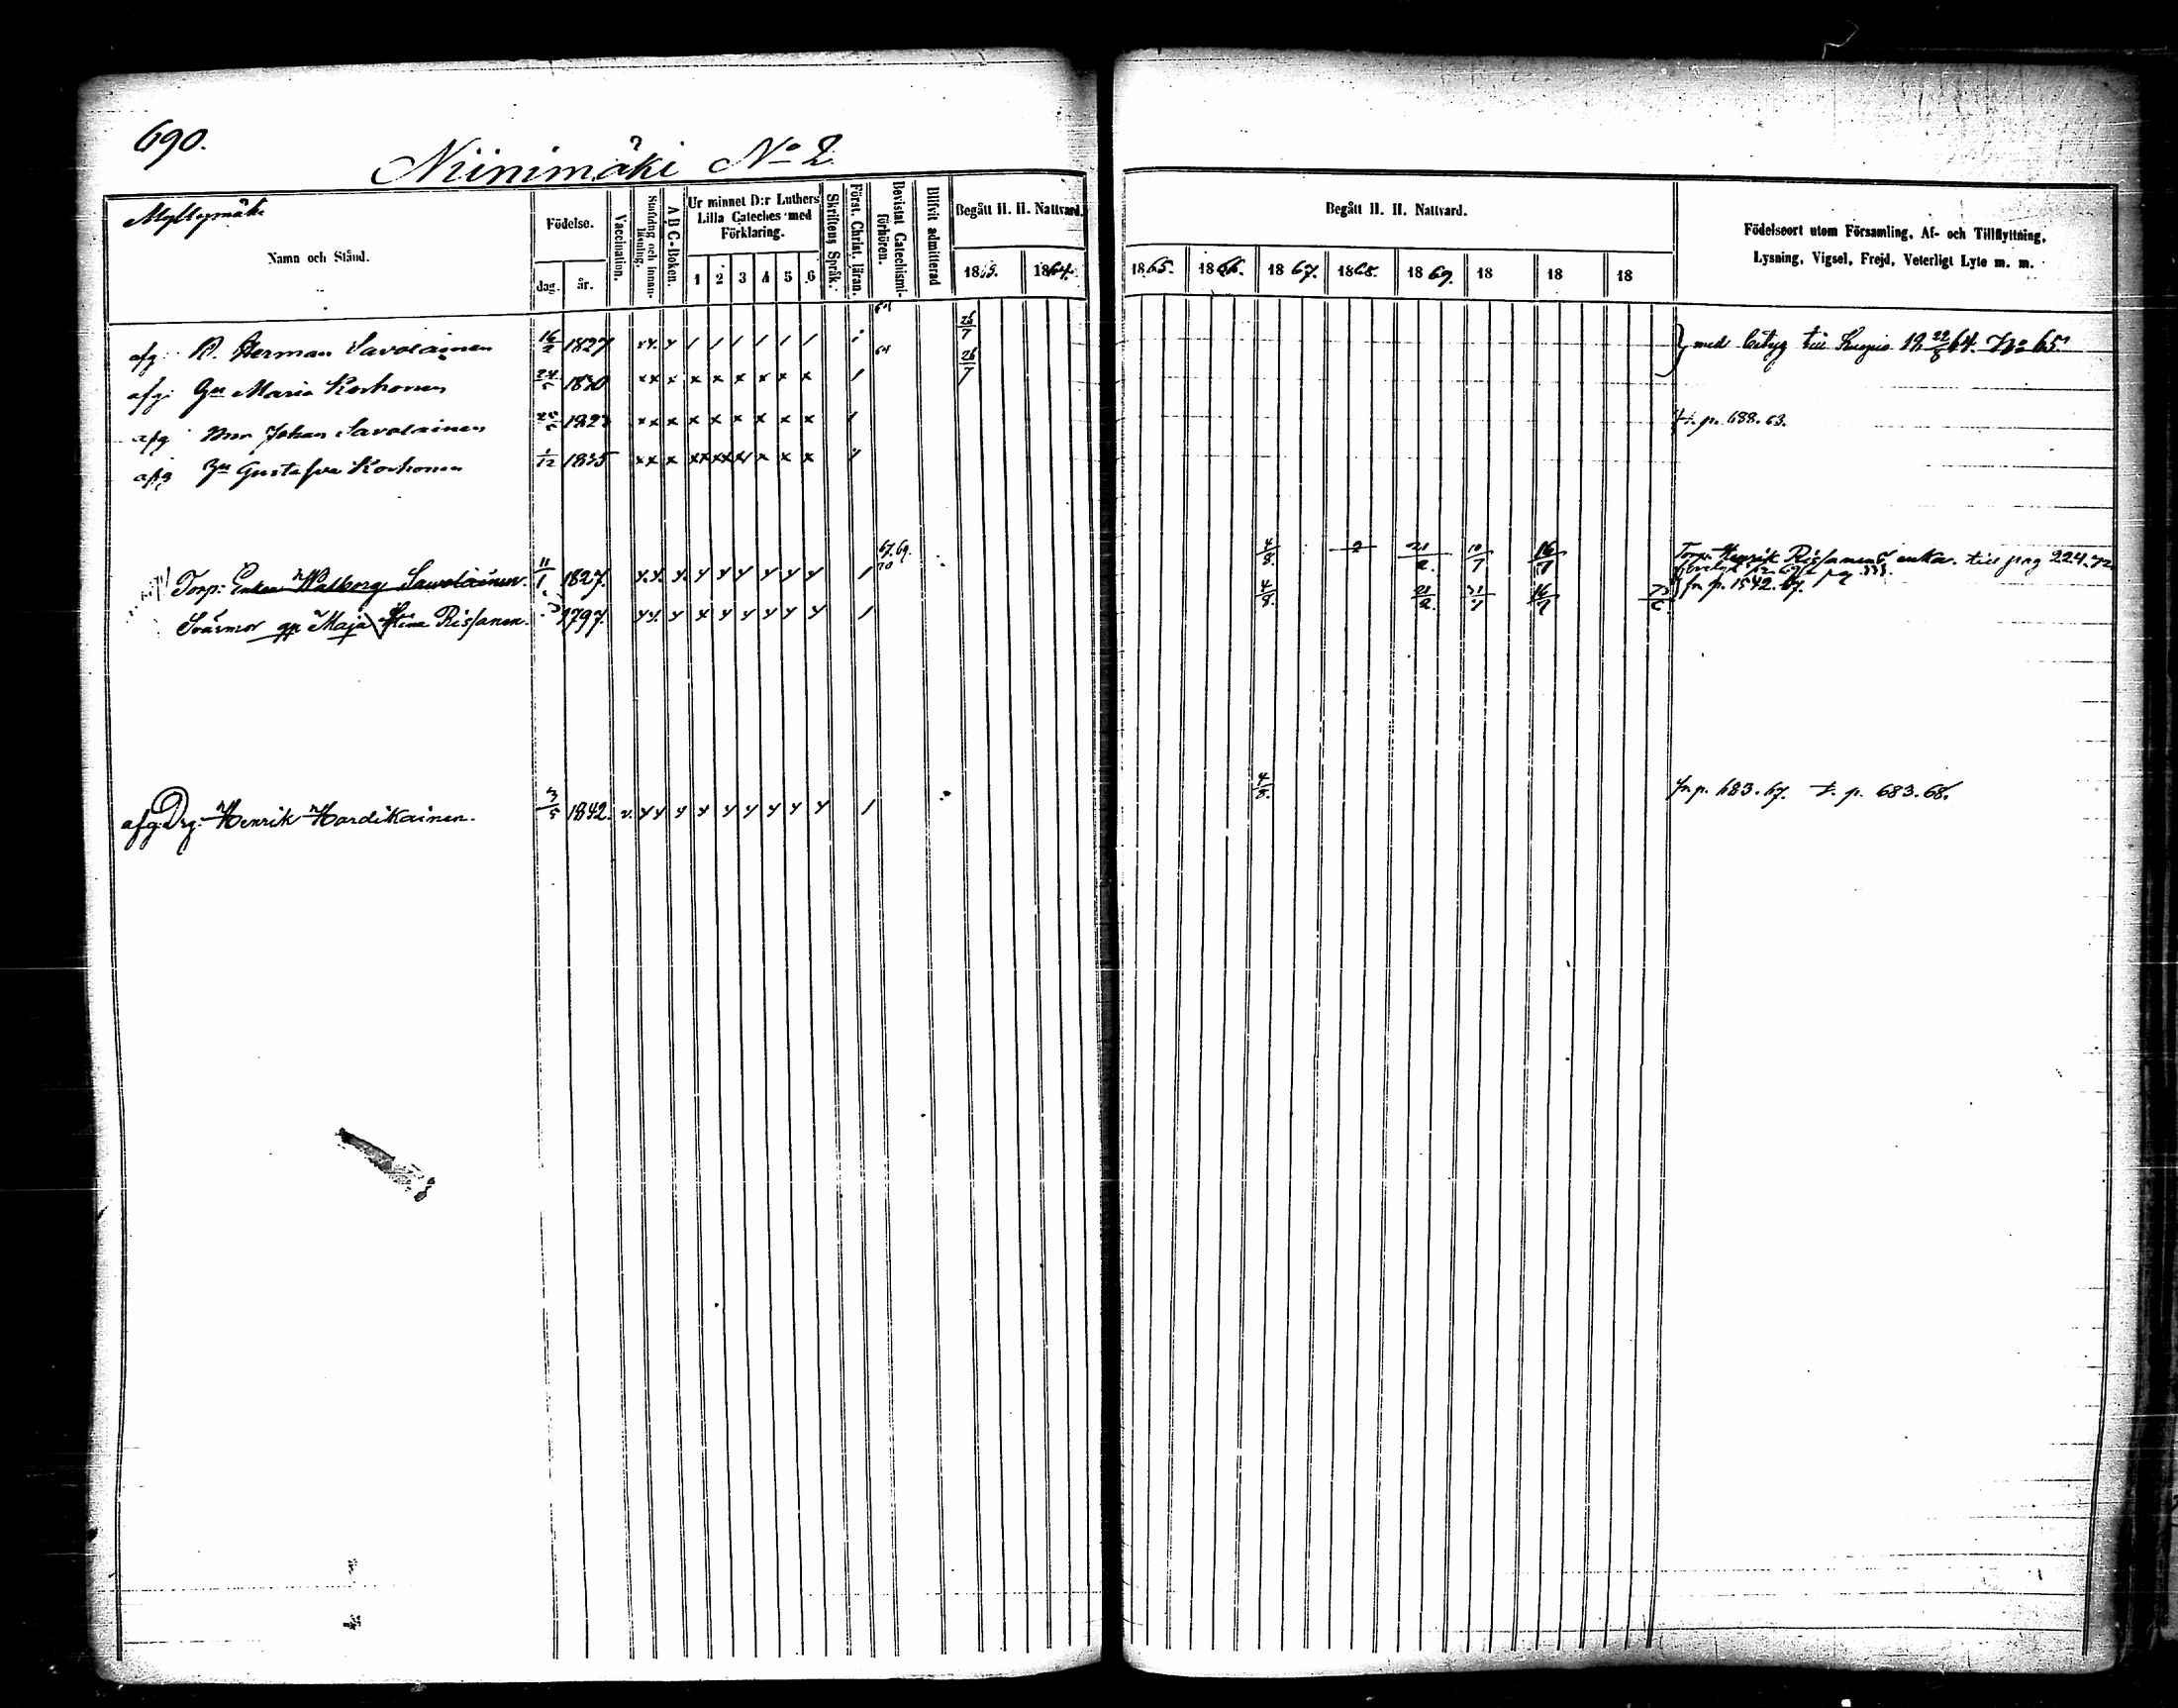 690.
Niinimäki No 2
Myllymäki
Namn och Stånd.
Födelse.
dag.
år.
Vaccination.
Stafning och innanläsning.
A B C-Boken.
Ur minnet D:r Luthers Lilla Cateches med Förklaring.
1 2 3 4 5 6
Skriftens Språk.
Först. Christ. läran.
Bevistat Catechismi-förhören.
Blifvit admitterad
Begått H. H. Nattvard.
1864.
Begått H. H. Nattvard.
1865. 1866. 1867. 1868. 1869. 18 18 18
Födelseort utom Församling, Af- och Tillflyttning,
Lysning, Vigsel, Frejd, Veterligt Lyte m. m.
afg. Herman Savolainen 16/2 1827 26/7 med betyg till Kuopio 19 22/8 64. No 65.
afg. Maria Korhonen 1830 26/7
afg Johan Savolainen t. p. 688. 63.
afg Gustafva Korhonen 1/12 1835
Torp: Enkan Walborg Savolainen. 11/1 1827. 67. 69. 70 4/8. Torp. Henrik Rissanens enka. till pag 224. 72
Svärmor Maja Stina Rissanen. 1797. 4/8. fr p. 1542. 67.
afg. Drg. Henrik Hardikainen. 3/5 1842. v. 4/8. fr p. 683. 67. t. p. 683. 68.